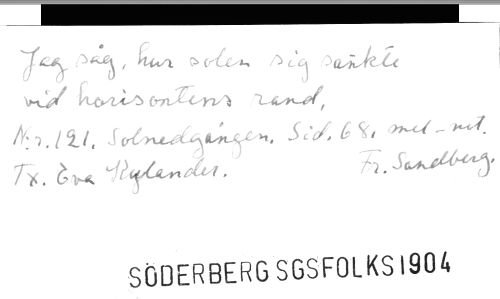 Jag såg, hur solen sig sänkte
vid horisontens rand,
N:r. 121. Solnedgången. Sid. 68. mel-not.
Tx. Eva Rylander. Fr. Sandberg.
SÖDERBERG SGSFOLKS1904